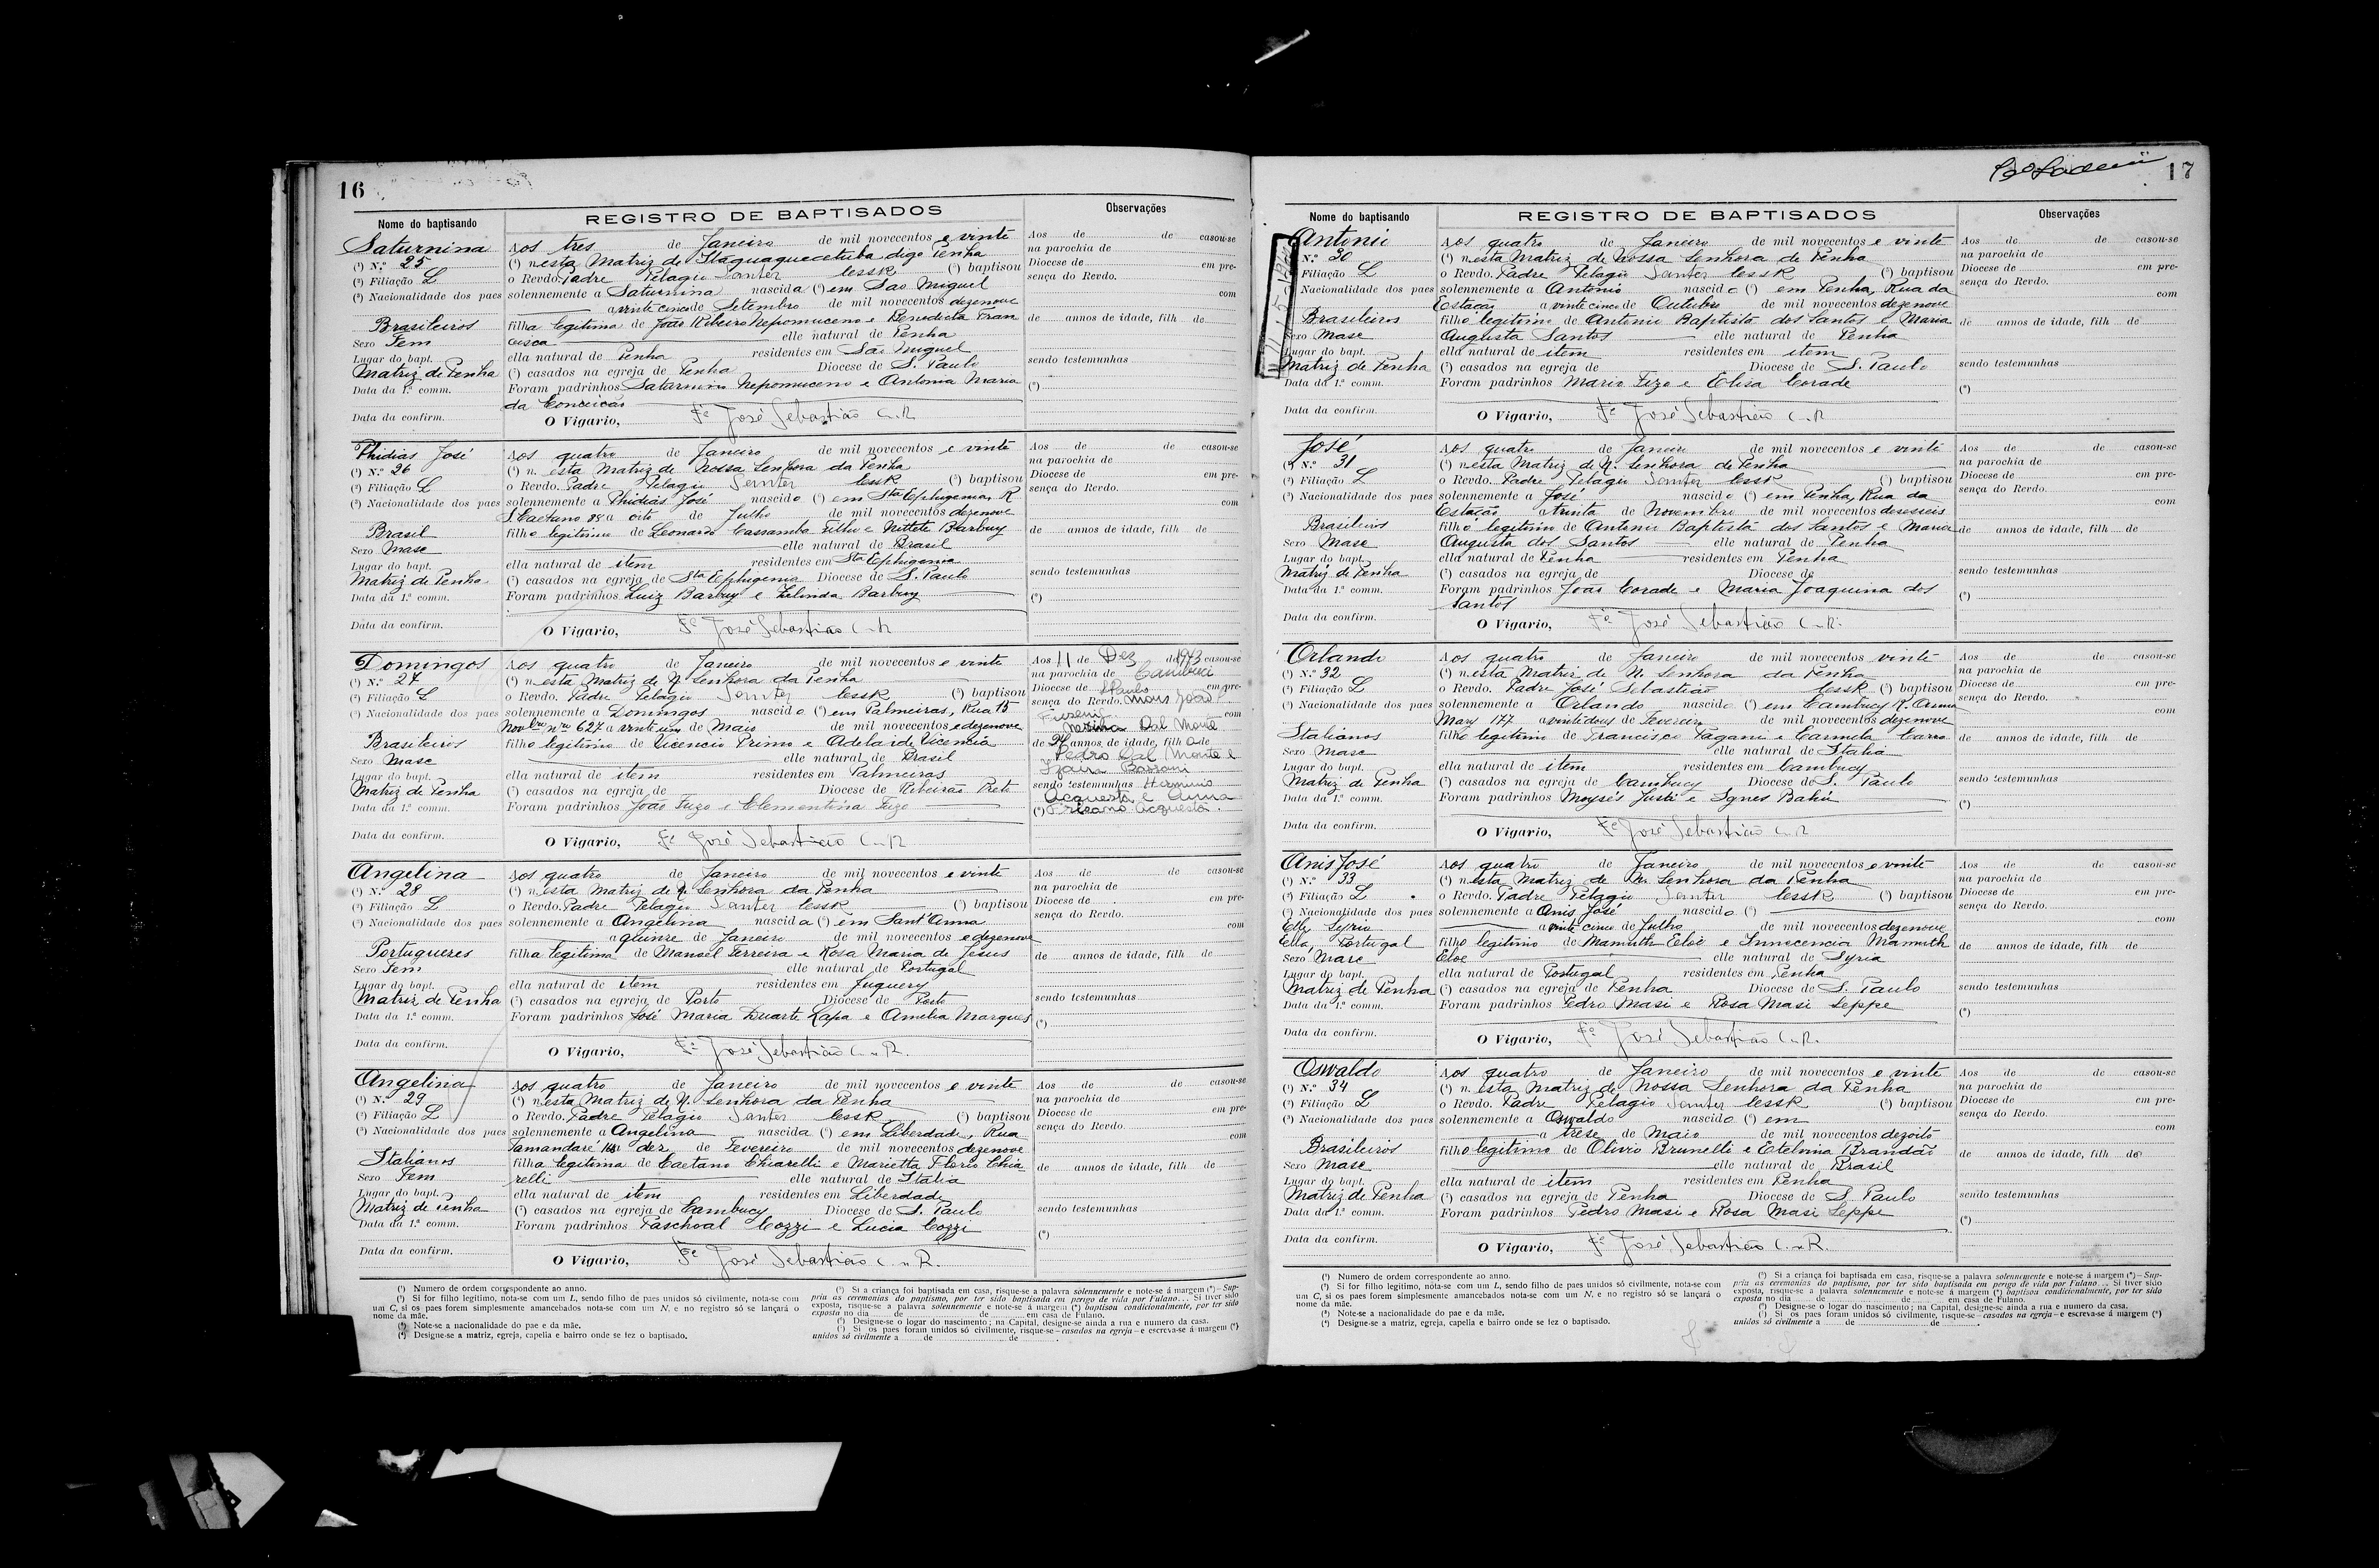 16
REGISTRO DE BAPTISADOS
Nome do baptisando
Observações
Saturnina
(¹) N.º 25
(²) Filiação L
(³) Nacionalidade dos paes
Brasileiros
Sexo Fem
Lugar do bapt.
Matriz de Penha
Data da 1.ª comm.
Data da confirm.
Aos tres de Janeiro de mil novecentos e vinte
(⁴) nesta Matriz de Itaquaquecetuba digo Penha
o Revdo. Padre Pelagio Santer lessk (⁵) baptisou
solennemente a Saturnina nascida (⁶) em Sao Miguel
a vinte cinco de Setembro de mil novecentos dezenove
filha legitima de João Ribeiro Nepomuceno e Benedicta Fran
cisca elle natural de Penha
ella natural de Penha residentes em São Miguel
(⁷) casados na egreja de Penha Diocese de S. Paulo
Foram padrinhos Saturnino Nepomuceno e Antonia Maria
da Conceição
O Vigario, Pe José Sebastião C.ss.R
Aos de de casou-se
na parochia de
Diocese de em pre-
sença do Revdo.
com
de annos de idade, filh de
sendo testemunhas
(*)
Phidias José
(¹) N.º 26
(²) Filiação L
(³) Nacionalidade dos paes
Brasil
Sexo Masc
Lugar do bapt.
Matriz de Penha
Data da 1.ª comm.
Data da confirm.
Aos quatro de Janeiro de mil novecentos e vinte
(⁴) n esta Matriz de Nossa Senhora da Penha
o Revdo. Padre Pelagio Santer lessk (⁵) baptisou
solennemente a Phidias José nascido (⁶) em Sta Ephigenia, R
S. Caetano 88 a oito de Julho de mil novecentos dezenove
filho legitimo de Leonardo Cassamba Filho e Nittete Barbuy
elle natural de Brasil
ella natural de item residentes em Sta Ephigenia
(⁷) casados na egreja de Sta Ephigenia Diocese de S. Paulo
Foram padrinhos Luiz Barbuy e Zelinda Barbuy
O Vigario, Pe José Sebastião C.ss.R
Aos de de casou-se
na parochia de
Diocese de em pre-
sença do Revdo.
com
de annos de idade, filh de
sendo testemunhas
(*)
Domingos
(¹) N.º 27
(²) Filiação L
(³) Nacionalidade dos paes
Brasileiros
Sexo Masc
Lugar do bapt.
Matriz de Penha
Data da 1.ª comm.
Data da confirm.
Aos quatro de Janeiro de mil novecentos e vinte
(⁴) n esta Matriz de N. Senhora da Penha
o Revdo. Padre Pelagio Santer lessk (⁵) baptisou
solennemente a Domingos nascido (⁶) em Palmeiras, Rua 15
Novbro nro 627 a vinte um de Maio de mil novecentos e dezenove
filho legitimo de Vicencio Primo e Adelaide Vicencia
elle natural de Brasil
ella natural de item residentes em Palmeiras
(⁷) casados na egreja de Diocese de Ribeirão Preto
Foram padrinhos João Fuzo e Clementina Fuzo
O Vigario, Pe José Sebastião C.ss.R
Aos 11 de Dez de 1943 casou-se
na parochia de Cambuci
Diocese de S Paulo em pre-
sença do Revdo. Mons João
com
Dal Monte
de annos de idade, filh a de
Pedro Dal Monte e
sendo testemunhas Herminio
Acquesta e Anna
(*) Acquesta.
Angelina
(¹) N.º 28
(²) Filiação L
(³) Nacionalidade dos paes
Portuguezes
Sexo Fem
Lugar do bapt.
Matriz de Penha
Data da 1.ª comm.
Data da confirm.
Aos quatro de Janeiro de mil novecentos e vinte
(⁴) n esta Matriz de N. Senhora da Penha
o Revdo. Padre Pelagio Santer lessk (⁵) baptisou
solennemente a Angelina nascida (⁶) em Sant'Anna
a quinze de Janeiro de mil novecentos e dezenove
filha legitima de Manoel Ferreira e Rosa Maria de Jesus
elle natural de Portugal
ella natural de item residentes em Juquery
(⁷) casados na egreja de Porto Diocese de Porto
Foram padrinhos José Maria Duarte Lapa e Amelia Marques
O Vigario, Pe José Sebastião C.ss.R.
Aos de de casou-se
na parochia de
Diocese de em pre-
sença do Revdo.
com
de annos de idade, filh de
sendo testemunhas
(*)
Angelina
(¹) N.º 29
(²) Filiação L
(³) Nacionalidade dos paes
Italianos
Sexo Fem
Lugar do bapt.
Matriz de Penha
Data da 1.ª comm.
Data da confirm.
Aos quatro de Janeiro de mil novecentos e vinte
(⁴) nesta Matriz de N. Senhora da Penha
o Revdo. Padre Pelagio Santer lessk (⁵) baptisou
solennemente a Angelina nascida (⁶) em Liberdade, Rua
Tamandaré a dez de Fevereiro de mil novecentos dezenove
filha legitima de Caetano Chiarelli e Marietta Florio Chia
relli elle natural de Italia
ella natural de item residentes em Liberdade
(⁷) casados na egreja de Cambucy Diocese de S. Paulo
Foram padrinhos Paschoal Cozzi e Lucia Cozzi
O Vigario, Pe José Sebastião C.ss.R.
Aos de de casou-se
na parochia de
Diocese de em pre-
sença do Revdo.
com
de annos de idade, filh de
sendo testemunhas
(*)
(¹) Numero de ordem correspondente ao anno.
(²) Si for filho legitimo, nota-se com um L, sendo filho de paes unidos só civilmente, nota-se com
um C, si os paes forem simplesmente amancebados nota-se com um N, e no registro só se lançará o
nome da mãe.
(³) Note-se a nacionalidade do pae e da mãe.
(⁴) Designe-se a matriz, egreja, capella e bairro onde se fez o baptisado.
(⁵) Si a criança foi baptisada em casa, risque-se a palavra solennemente e note-se á margem (*) – Sup-
priu as ceremonias do baptismo, por ter sido baptisada em perigo de vida por Fulano... Si tiver sido
exposta, risque-se a palavra solennemente e note-se á margem (*) baptisou condicionalmente, por ter sido
exposto no dia de de em casa de Fulano.
(⁶) Designe-se o logar do nascimento; na Capital, designe-se ainda a rua e numero da casa.
(⁷) Si os paes foram unidos só civilmente, risque-se – casados na egreja – e escreva-se á margem (*)
unidos só civilmente a de de .
17
REGISTRO DE BAPTISADOS
Nome do baptisando
Observações
Antonio
N.º 30
Filiação L
Nacionalidade dos paes
Brasileiros
Sexo Masc
Lugar do bapt.
Matriz de Penha
Data da 1.ª comm.
Data da confirm.
Aos quatro de Janeiro de mil novecentos e vinte
(⁴) nesta Matriz de Nossa Senhora de Penha
o Revdo. Padre Pelagio Santer lessk (⁵) baptisou
solennemente a Antonio nascido (⁶) em Penha, Rua da
Estação a vinte cinco de Outubro de mil novecentos dezenove
filho legitimo de Antonio Baptista dos Santos e Maria
Augusta Santos elle natural de Penha
ella natural de item residentes em item
(⁷) casados na egreja de Diocese de S. Paulo
Foram padrinhos Mario Fuzo e Elisa Corade
O Vigario, Pe José Sebastião C.ss.R
Aos de de casou-se
na parochia de
Diocese de em pre-
sença do Revdo.
com
de annos de idade, filh de
sendo testemunhas
(*)
José
(¹) N.º 31
(²) Filiação L
(³) Nacionalidade dos paes
Brasileiros
Sexo Masc
Lugar do bapt.
Matriz de Penha
Data da 1.ª comm.
Data da confirm.
Aos quatro de Janeiro de mil novecentos e vinte
(⁴) nesta Matriz de N. Senhora de Penha
o Revdo. Padre Pelagio Santer lessk (⁵) baptisou
solennemente a José nascido (⁶) em Penha, Rua da
Estação a trinta de Novembro de mil novecentos deseseis
filho legitimo de Antonio Baptista dos Santos e Maria
Augusta dos Santos elle natural de Penha
ella natural de Penha residentes em Penha
(⁷) casados na egreja de Diocese de
Foram padrinhos João Corade e Maria Joaquina dos
Santos
O Vigario, Pe José Sebastião C.ss.R.
Aos de de casou-se
na parochia de
Diocese de em pre-
sença do Revdo.
com
de annos de idade, filh de
sendo testemunhas
(*)
Orlando
(¹) N.º 32
(²) Filiação L
(³) Nacionalidade dos paes
Italianos
Sexo Masc
Lugar do bapt.
Matriz de Penha
Data da 1.ª comm.
Data da confirm.
Aos quatro de Janeiro de mil novecentos vinte
(⁴) nesta Matriz de N. Senhora da Penha
o Revdo. Padre José Sebastião lessk (⁵) baptisou
solennemente a Orlando nascido (⁶) em Cambucy R. Anna
Mary 177 a vinte dous de Fevereiro de mil novecentos dezenove
filho legitimo de Francisco Pagani e Carmela Carro
elle natural de Italia
ella natural de item residentes em Cambucy
(⁷) casados na egreja de Cambucy Diocese de S. Paulo
Foram padrinhos Moysés Justi e Ignes Bahú
O Vigario, Pe José Sebastião C.ss.R
Aos de de casou-se
na parochia de
Diocese de em pre-
sença do Revdo.
com
de annos de idade, filh de
sendo testemunhas
(*)
Anis José
(¹) N.º 33
(²) Filiação L
(³) Nacionalidade dos paes
Elle, Syrio
Ella, Portugal
Sexo Masc
Lugar do bapt.
Matriz de Penha
Data da 1.ª comm.
Data da confirm.
Aos quatro de Janeiro de mil novecentos e vinte
(⁴) nesta Matriz de N. Senhora da Penha
o Revdo. Padre Pelagio Santer lessk (⁵) baptisou
solennemente a Anis José nascido (⁶)
a vinte cinco de Julho de mil novecentos dezenove
filho legitimo de Mamuth Eloe e Innocencia Mamuth
Eloe elle natural de Syria
ella natural de Portugal residentes em Penha
(⁷) casados na egreja de Penha Diocese de S. Paulo
Foram padrinhos Pedro Masi e Rosa Masi Seppe
O Vigario, Pe José Sebastião C.ss.R.
Aos de de casou-se
na parochia de
Diocese de em pre-
sença do Revdo.
com
de annos de idade, filh de
sendo testemunhas
(*)
Oswaldo
(¹) N.º 34
(²) Filiação L
(³) Nacionalidade dos paes
Brasileiros
Sexo Masc
Lugar do bapt.
Matriz de Penha
Data da 1.ª comm.
Data da confirm.
Aos quatro de Janeiro de mil novecentos e vinte
(⁴) n esta Matriz de Nossa Senhora da Penha
o Revdo. Padre Pelagio Santer lessk (⁵) baptisou
solennemente a Oswaldo nascido (⁶) em
a trese de Maio de mil novecentos dezoito
filho legitimo de Olivio Brunelli e Etelvina Brandão
elle natural de Brasil
ella natural de item residentes em Penha
(⁷) casados na egreja de Penha Diocese de S. Paulo
Foram padrinhos Pedro Masi e Rosa Masi Seppe
O Vigario, Pe José Sebastião C.ss.R.
Aos de de casou-se
na parochia de
Diocese de em pre-
sença do Revdo.
com
de annos de idade, filh de
sendo testemunhas
(*)
(¹) Numero de ordem correspondente ao anno.
(²) Si for filho legitimo, nota-se com um L, sendo filho de paes unidos só civilmente, nota-se com
um C, si os paes forem simplesmente amancebados nota-se com um N, e no registro só se lançará o
nome da mãe.
(³) Note-se a nacionalidade do pae e da mãe.
(⁴) Designe-se a matriz, egreja, capella e bairro onde se fez o baptisado.
(⁵) Si a criança foi baptisada em casa, risque-se a palavra solennemente e note-se á margem (*) – Sup-
priu as ceremonias do baptismo, por ter sido baptisada em perigo de vida por Fulano... Si tiver sido
exposta, risque-se a palavra solennemente e note-se á margem (*) baptisou condicionalmente, por ter sido
exposto no dia de de em casa de Fulano.
(⁶) Designe-se o logar do nascimento; na Capital, designe-se ainda a rua e numero da casa.
(⁷) Si os paes foram unidos só civilmente, risque-se – casados na egreja – e escreva-se á margem (*)
unidos só civilmente a de de .